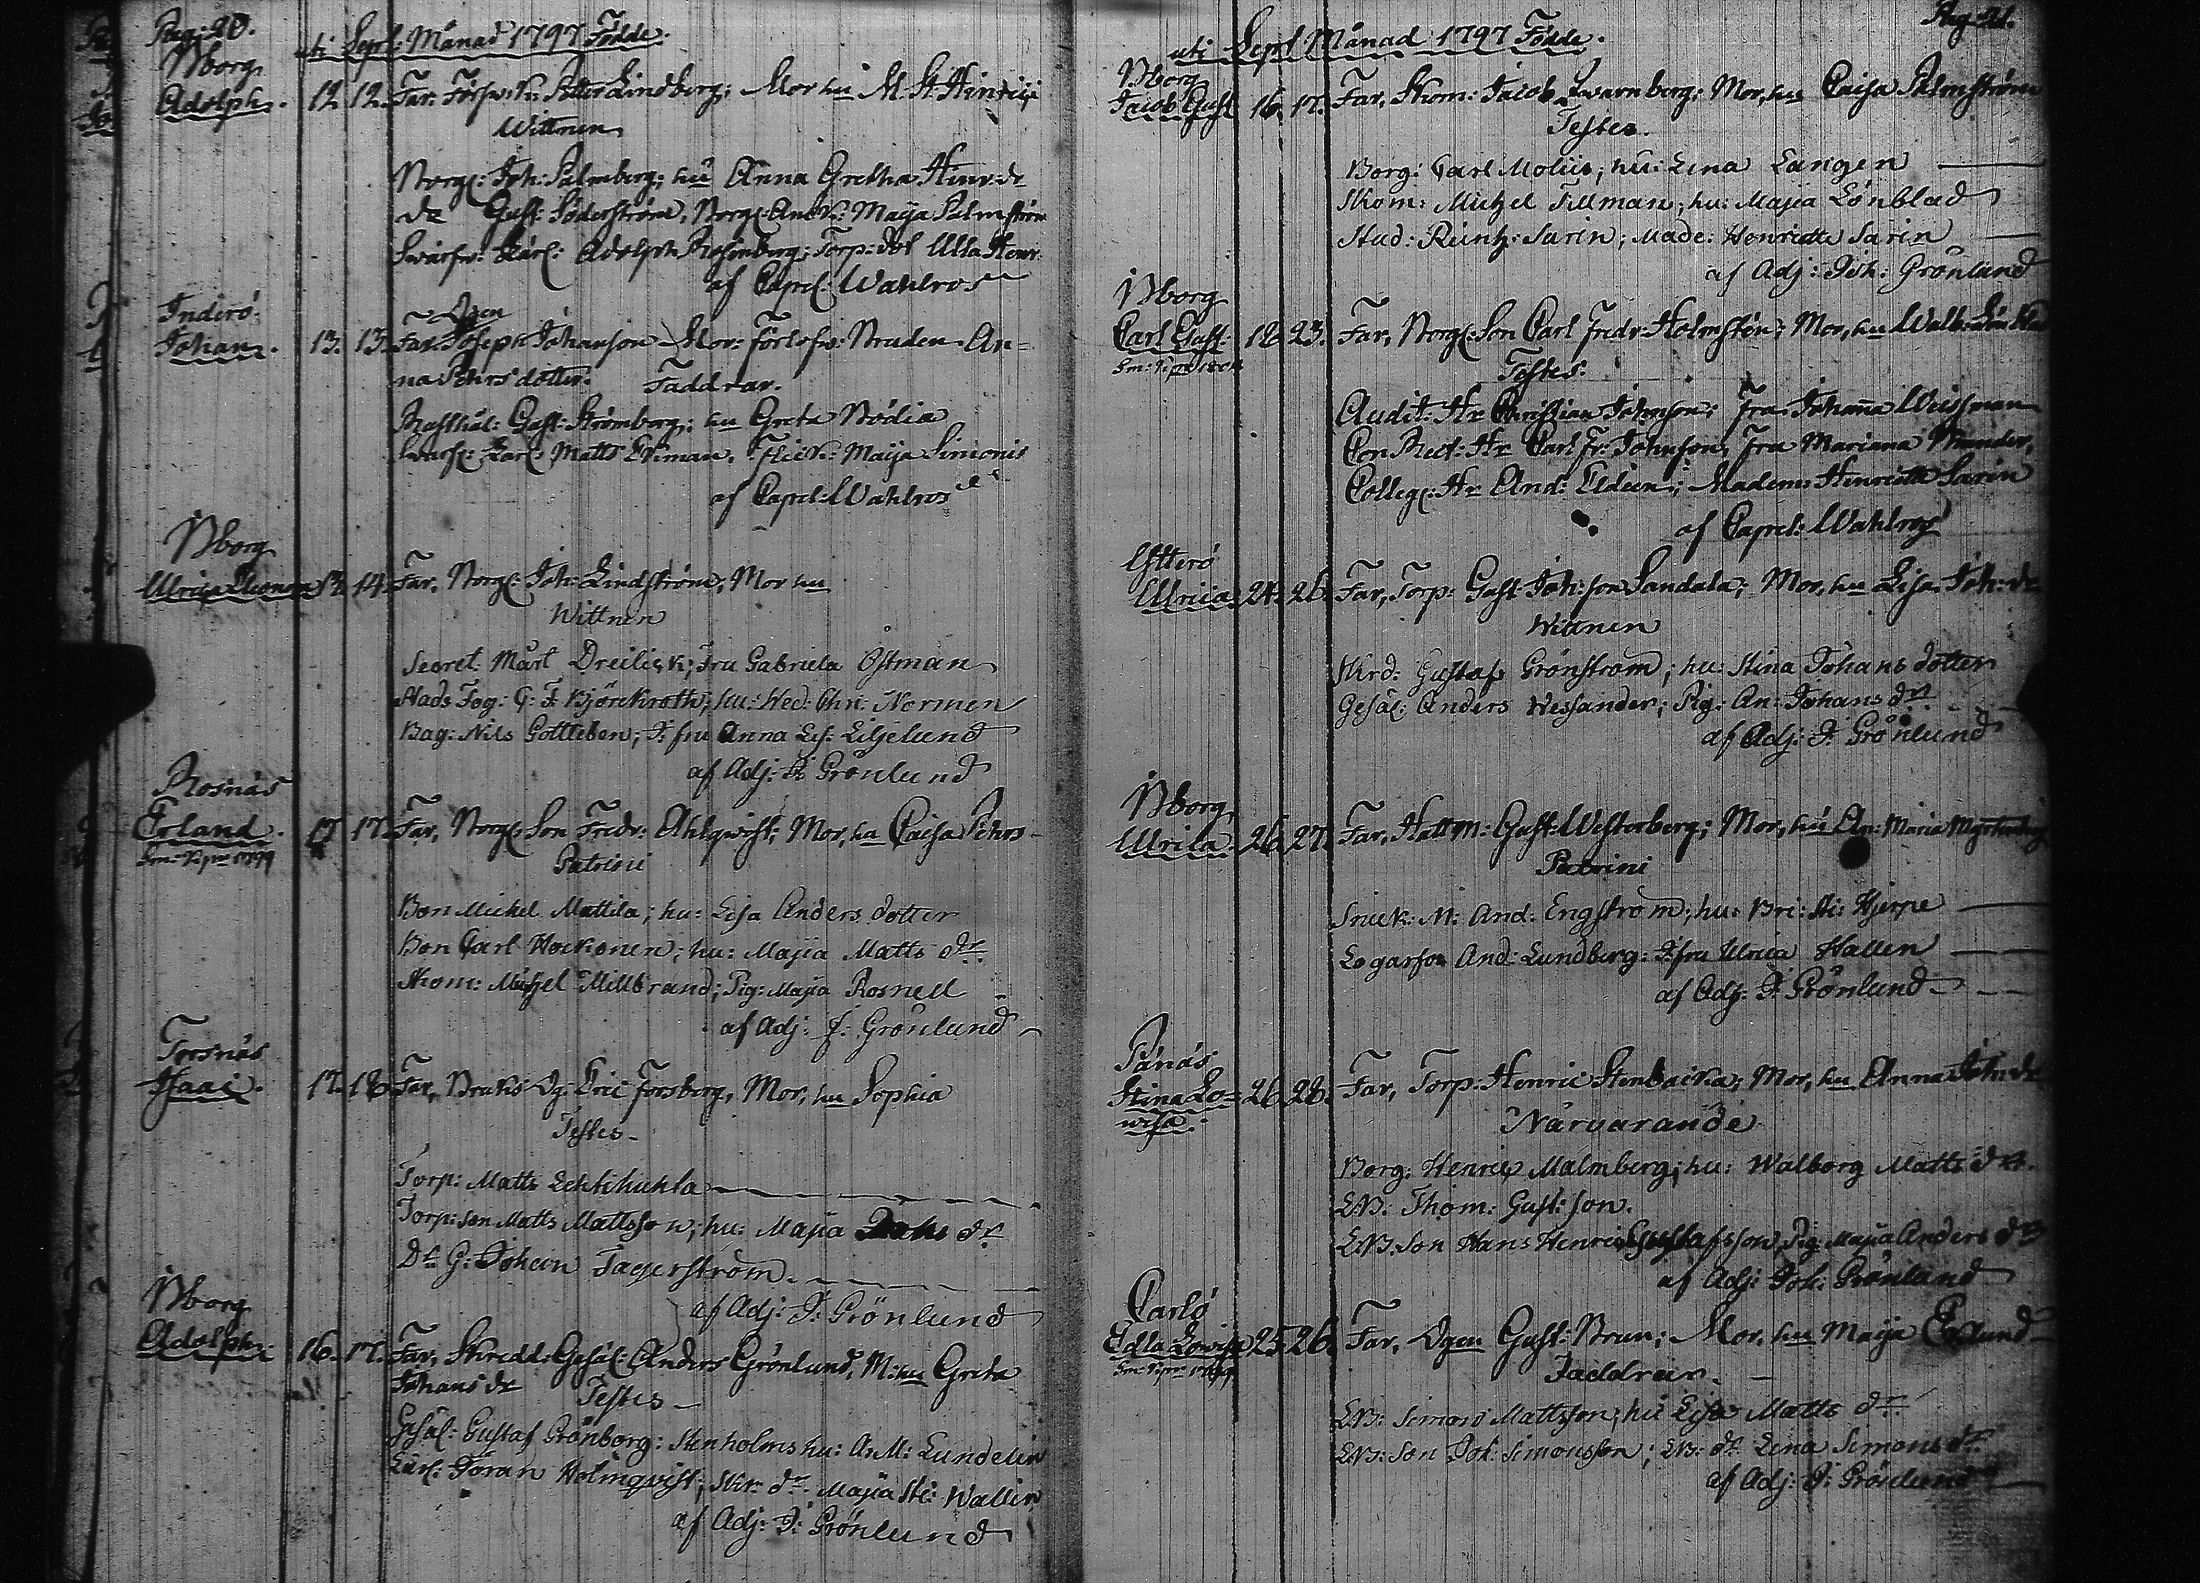 Pag: 20.
uti Sept: Månad 1797 Födde.
Bborg
Adolph. 12 12. Far. Petter Lindberg; Mor hu M. St. Hinrici
Wittnen
Borg: Joh: Palmberg; hu Anna Gretha Hinr: dr
dr Gust: Söderström, Borg: Maija Palmström
Swarfv: Lärl: Adolph Rosenberg; Torp: dot Ulla Henr.
af Capel: Wahlroos
Inderö.
Johan. 13. 13. Far. Joseph Johanson Mor: Förlofw: Bruden An=
na Pehrs dotter. Faddrar.
Rusthål: Gust: Strömborg; hu Greta Bödia
Swarf: Lärl: Matts Ekman. Flick: Maija Simonis
af Capel: Wahlros
Bborg
Ulrica Eleonora 13. 14. Far, Borg: Joh: Lindström; Mor hu
Wittnen
Secret. Mårt Dreilick; Fru Gabriela Östman
Stads Fog: G: F. Björckroth; hu: Hed: Chri: Normen
Bag: Nils Gottleben; J: fru Anna Lis: Liljelund
af Adj: J: Grönlund
Rosnäs
Erland. 17 17. Far, Borg: Son Fredr: Ahlqwist; Mor, hu Caisa Pehrs-
Patrini
Bon Michel Mattila; hu: Lisa Anders dotter
Bon Carl Hockonen; hu: Majia Matts dr.
Skom: Michel Millbrand; Pig: Majia Rosnell
af Adj: J: Grönlund
Torsnäs
Isaac. 17. 18. Far, Bruks Dg: Eric Forsberg, Mor, hu Sophia
Testes
Torp: Matts Lehtihuhta
Torp: son Matts Mattsson; hu: Majia dr
Dr G: Johan Fagerström.
af Adj: J: Grönlund
Bborg
Adolph. 16. 17. Far, Skredd: Gesäl: Anders Grönlund, M: hu Greta
Johans dr Testes
Gesäl: Gustaf Grönborg: Stenholms hu: A: M: Lundelin
Lärl: Göran Holmqvist; Skr: dr. Majia Sti: Wallin
af Adj: J: Grönlund
Pag: 21.
uti Sept: Månad 1797 Födde.
Bborg
Jacob Gust 16. 17. Far, Skom: Jacob Qwarnberg; Mor, hu Caisa Palmström
Testes.
Borg: Carl Molius; hu: Lena Langen
Skom: Michel Tillman; hu: Majia Lönblad
Stud: Reintz: Sarin; Made: Henriette Sarin
af Adj: Joh: Grönlund
Bborg
Carl Gust: 18 23. Far, Borg: Son Carl Fredr: Holmsten; Mor, hu Walb:
Testes:
Audit: Hr Christian Johnson; Fru Johanna Weissman
Con Rect: Hr Carl Fr: Johnson, Fru Mariana Munder,
Colleg: Hr And: Eldeen; Madem: Henriette Sarin
af Capel: Wahlros
Ytterö
Ulrica. 24. 26. Far, Torp: Gust: Joh: son Sandala; Mor, hu Lisa Joh: dr
Wittnen
Skrd: Gustaf Grönstrom; hu: Stina Johans dotter
Gesäl: Anders Wessander; Pig: An: Johans dr
af Adj: J: Grönlund
Bborg
Ulrica. 26. 27. Far, Hattm: Gust: Westerberg; Mor, hu An: Maria
Patrini
Snick: M: And: Engström; hu: Bri: Sti: Hjerpe
And: Lundberg: J: fru Ulrica Hallen
af Adj: J: Grönlund
Pänäs
Stina Lo= 26 28. Far, Torp: Henric Stenbacka; Mor, hu Anna Joh: dr
wisa. Närvarande
Borg: Henric Malmberg; hu: Walborg Matts dr.
LB: Thom: Gust: son.
LB: Son Hans Henric Gustafsson, Pig: Majia Anders dr
af Adj: Joh: Grönlund
Carlö
Edla Lowisa 25 26. Far, Dgen Gust: Brun; Mor, hu Maija
Faddrar.
LB: Simon Mattsson; hu Lisa Matts dr
LB: Son Joh: Simonsson; LB: dr Lena Simons dr
af Adj: J: Grönlund